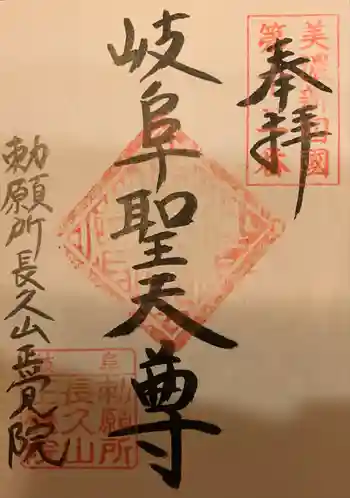 奉拝
岐阜聖天尊
勅願所長久山正覚院
美濃新四國
勅願所
長久山